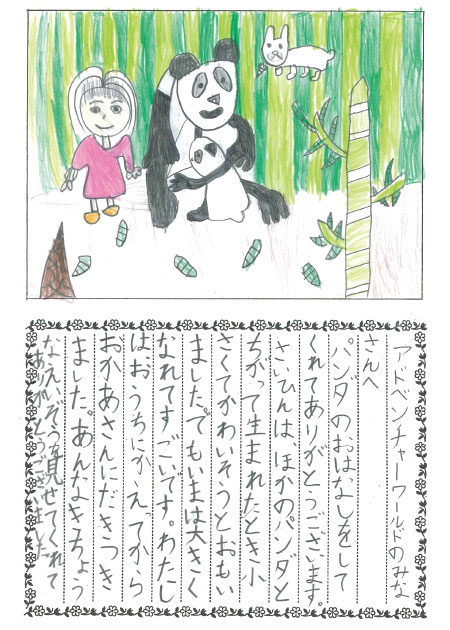 アドベンチャーワールドのみな
さんへ
パンダのおはなしをして
くれてありがとうございます。
さいひんは、ほかのパンダと
ちがって生まれたとき小
さくてかわいそうとおもい
ました。でもいまは大きく
なれてすごいです。わたし
はおうちにかえってから
おかあさんにだきつき
ました。あんなきちょう
なえいぞうを見せてくれて
ありがとうございました